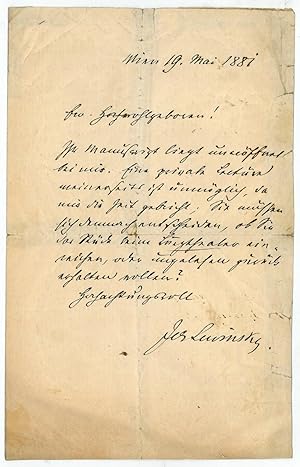 Wien 19. Mai 1881
Ew. Hochwohlgeboren!
Ihr Manuscript liegt uneröffnet
bei mir. Eine private Lectüre
meinerseits ist unmöglich, da
mir die Zeit gebricht. Sie müssen
sich demnach entscheiden, ob Sie
das Stück beim Burgtheater ein-
reichen, oder ungelesen zurück
erhalten wollen?
Hochachtungsvoll
Jos Lewinsky